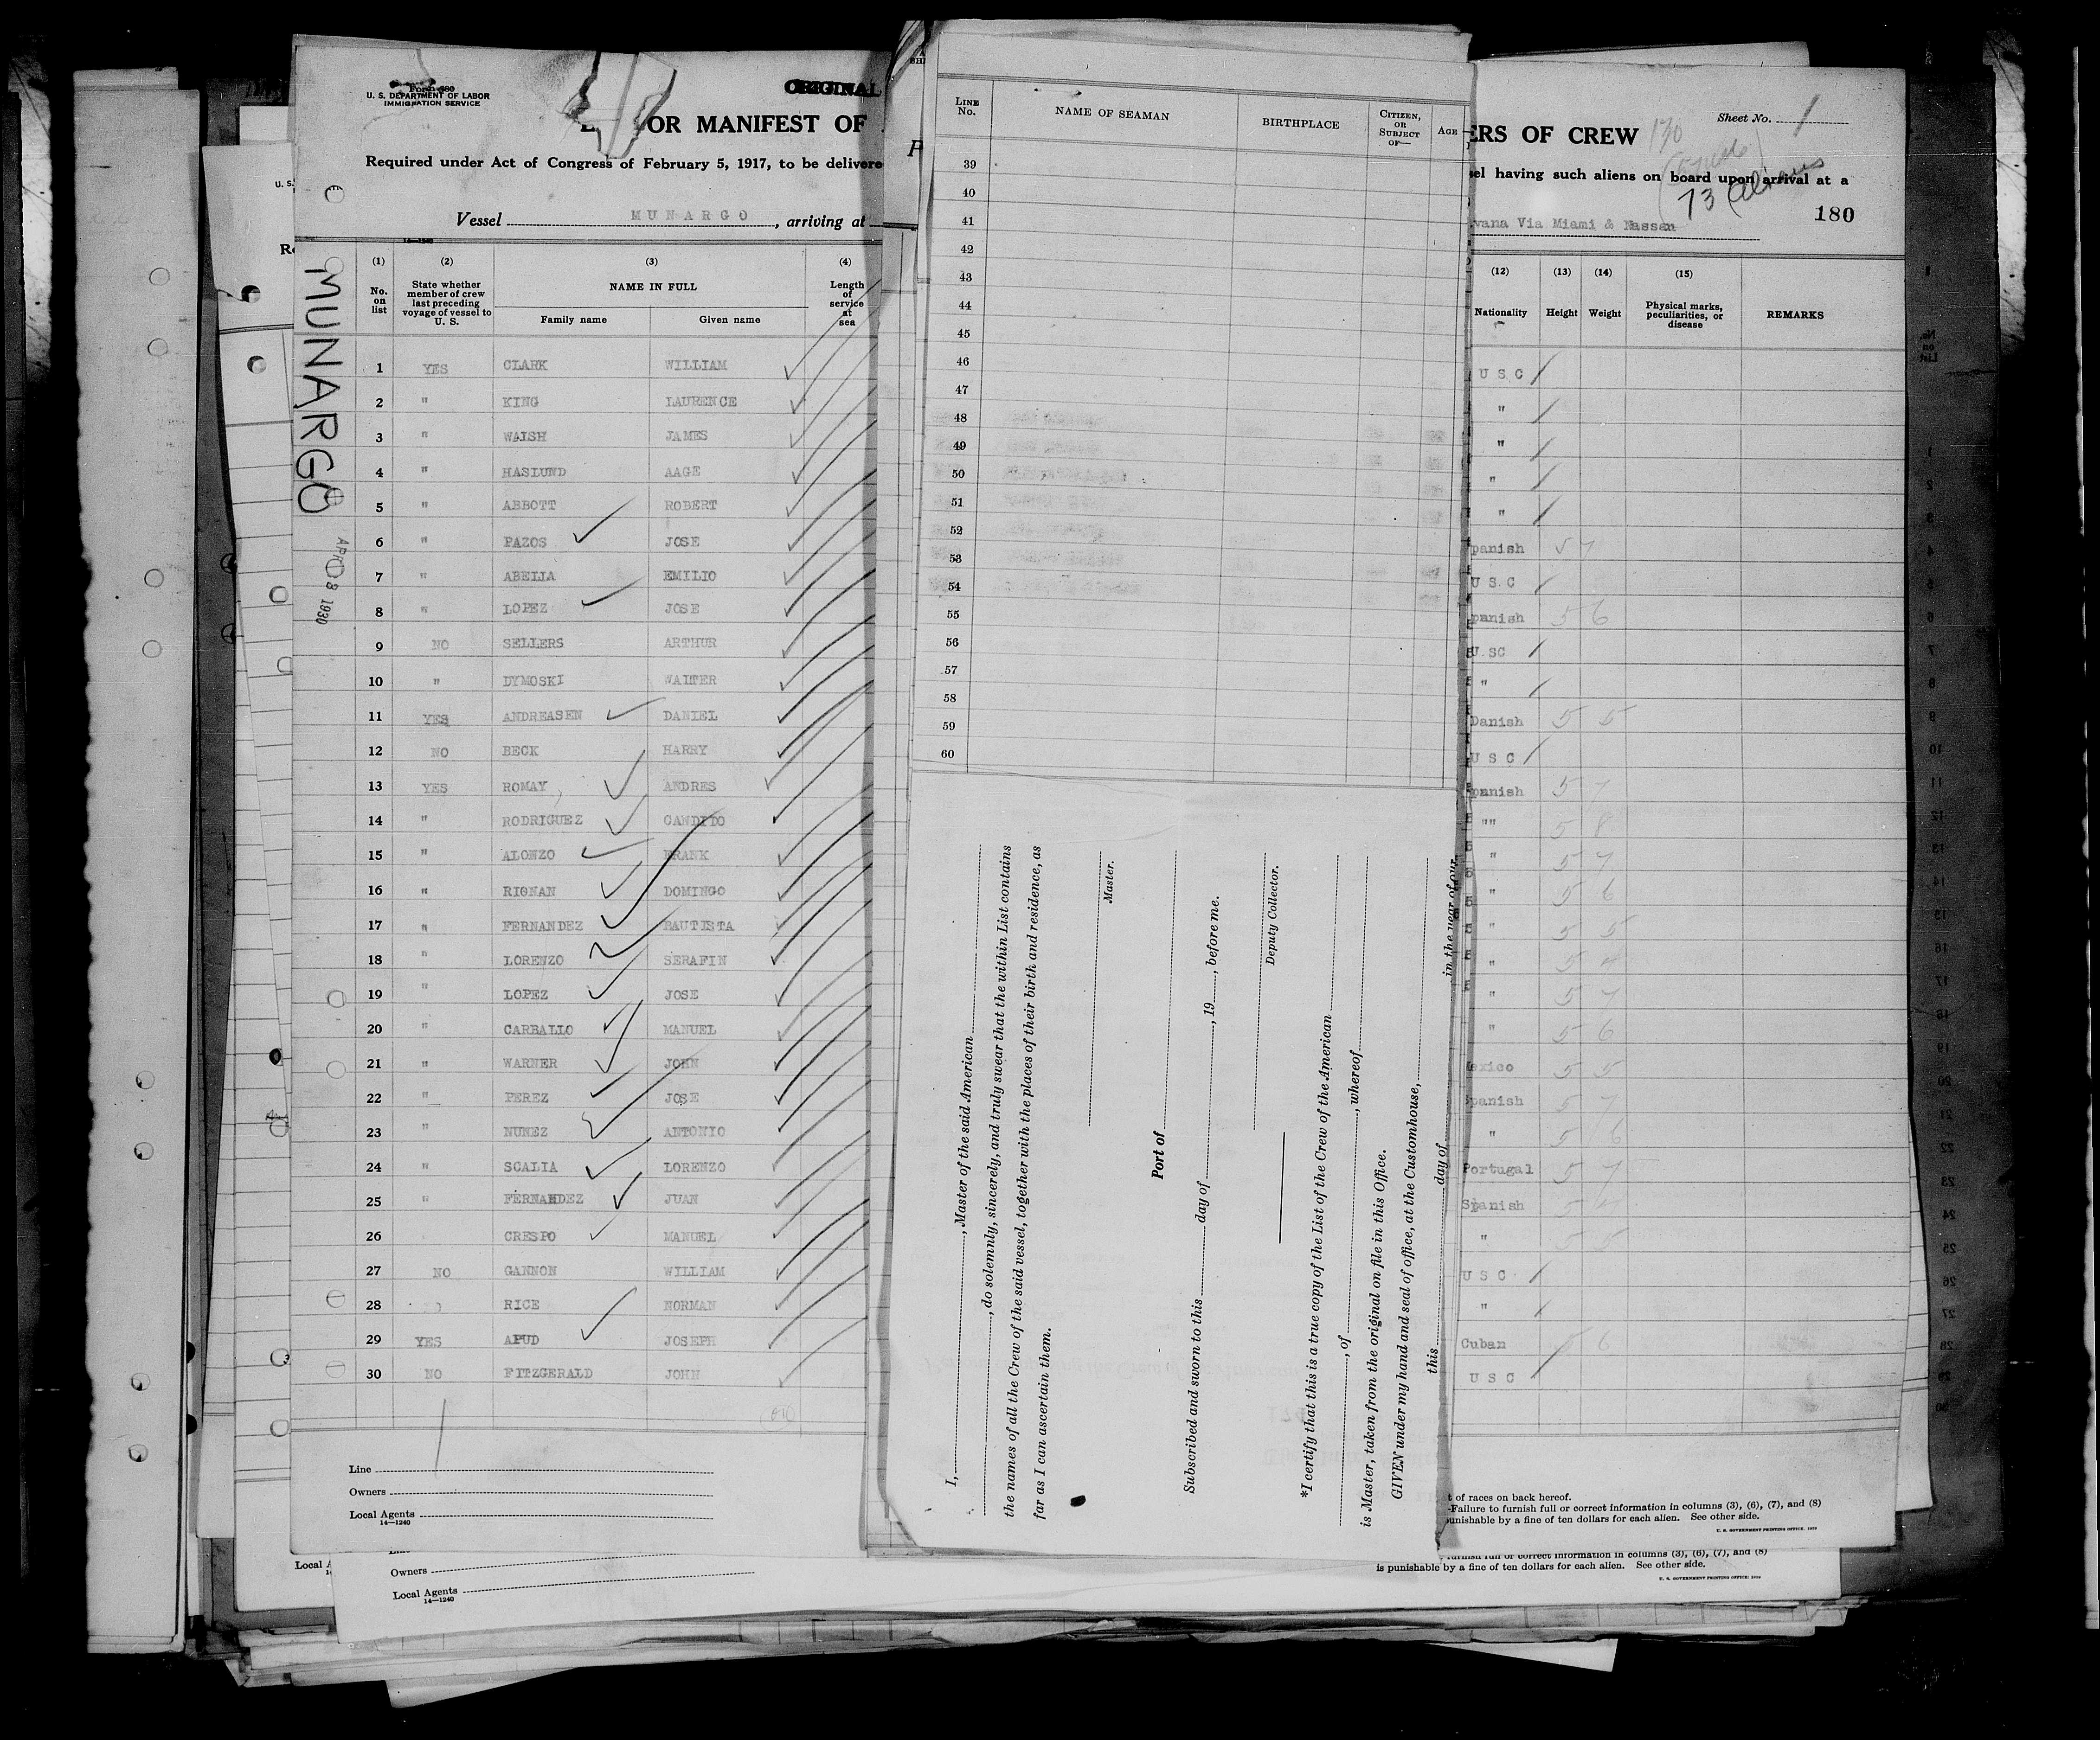 Form 680
U. S. DEPARTMENT OF LABOR
IMMIGRATION SERVICE
ORIGINAL
OR MANIFEST OF
Required under Act of Congress of February 5, 1917, to be delivere
Vessel MUNARGO, arriving at
14—1240
MUNARGO
APR 8 1930
(1) (2) (3) (4)
No. on list
State whether member of crew last preceding voyage of vessel to U. S.
NAME IN FULL
Family name Given name
Length of service at sea
1 YES CLARK WILLIAM
2 " KING LAURENCE
3 " WAISH JAMES
4 " HASLUND AAGE
5 " ABBOTT ROBERT
6 " PAZOS JOSE
7 " ABELLA EMILIO
8 " LOPEZ JOSE
9 NO SELLERS ARTHUR
10 " DYMOSKI WALTER
11 YES ANDREASEN DANIEL
12 NO BECK HARRY
13 YES ROMAY ANDRES
14 " RODRIGUEZ CANDIDO
15 " ALONZO FRANK
16 " RIGNAN DOMINGO
17 " FERNANDEZ BAUTISTA
18 " LORENZO SERAFIN
19 " LOPEZ JOSE
20 " CARBALLO MANUEL
21 " WARNER JOHN
22 " PEREZ JOSE
23 " NUNEZ ANTONIO
24 " SCALIA LORENZO
25 " FERNANDEZ JUAN
26 CRESPO MANUEL
27 NO GANNON WILLIAM
28 RICE NORMAN
29 YES APUD JOSEPH
30 NO FITZGERALD JOHN
Line
Owners
Local Agents
14—1240
Owners
Local Agents
14—1240
LINE No.
NAME OF SEAMAN
BIRTHPLACE
CITIZEN, OR SUBJECT OF—
AGE
39
40
41
42
43
44
45
46
47
48
49
50
51
52
53
54
55
56
57
58
59
60
I, , Master of the said American
, do solemnly, sincerely, and truly swear that the within List contains
the names of all the Crew of the said vessel, together with the places of their birth and residence, as
far as I can ascertain them.
Master.
Port of
Subscribed and sworn to this day of , 19 , before me.
Deputy Collector.
*I certify that this is a true copy of the List of the Crew of the American
, of , whereof
is Master, taken from the original on file in this Office.
GIVEN under my hand and seal of office, at the Customhouse,
this day of in the year of our
ERS OF CREW
Sheet No. 1
sel having such aliens on board upon arrival at a
73 Aliens
180
vana Via Miami & Nassau
(12) (13) (14) (15)
Nationality Height Weight
Physical marks, peculiarities, or disease
REMARKS
U S C
"
"
"
"
panish 5 7
U S C
panish 5 6
U.SC
"
Danish 5 5
U S C
panish 5 7
"" 5 8
" 5 7
" 5 6
" 5 5
" 5 4
" 5 7
" 5 6
exico 5 5
panish 5 7
" 5 6
Portugal 5 7
Spanish 5 4
" 5 5
U S C
"
Cuban 5 6
U S C
t of races on back hereof.
Failure to furnish full or correct information in columns (3), (6), (7), and (8)
unishable by a fine of ten dollars for each alien. See other side.
U. S. GOVERNMENT PRINTING OFFICE: 1929
furnish full or correct information in columns (3), (6), (7), and (8)
is punishable by a fine of ten dollars for each alien. See other side.
U. S. GOVERNMENT PRINTING OFFICE: 1929